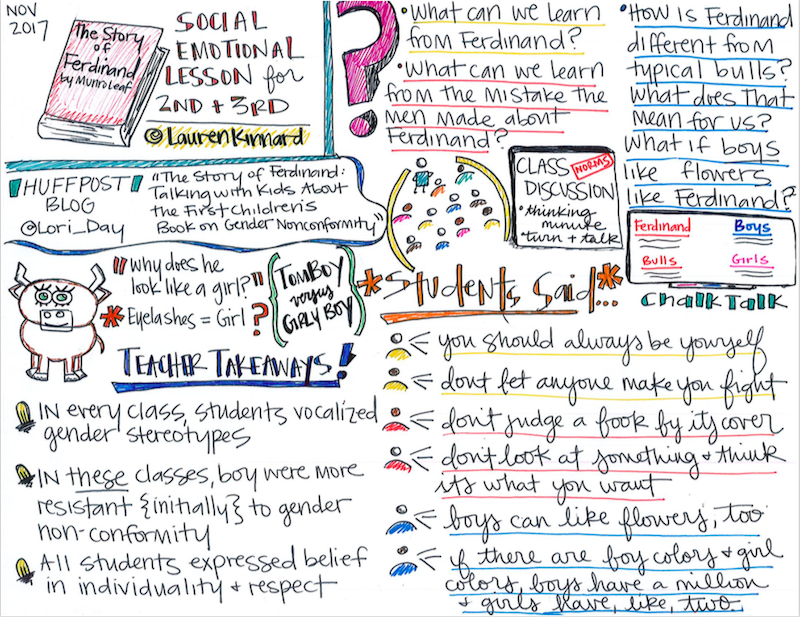 NOV
2017
The Story
of
Ferdinand
by Munro Leaf
SOCIAL
EMOTIONAL
LESSON for
2ND + 3RD
@LaurenKinnard
?
•What can we learn
from Ferdinand?
•What can we learn
from the mistake the
men made about
Ferdinand?
•How is Ferdinand
different from
typical bulls?
What does that
mean for us?
What if boys
like flowers
like Ferdinand?
HUFFPOST
BLOG
@Lori_Day
"The Story of Ferdinand:
Talking with Kids About
the First Children's
Book on Gender Nonconformity"
CLASS NORMS
DISCUSSION
•thinking
minute
•turn + talk
Ferdinand Boys
Bulls Girls
CHALK TALK
"Why does he
look like a girl?"
*Eyelashes = Girl?
{TOMBOY
versus
GIRLY BOY}
TEACHER TAKEAWAYS!
IN every class, students vocalized
gender stereotypes
IN these classes, boy were more
resistant {initially} to gender
non-conformity
All students expressed belief
in individuality + respect
*Students Said...*
you should always be yourself
dont let anyone make you fight
don't judge a book by its cover
don't look at something + think
its what you want
boys can like flowers, too
if there are boy colors + girl
colors, boys have a million
+ girls have, like, two.